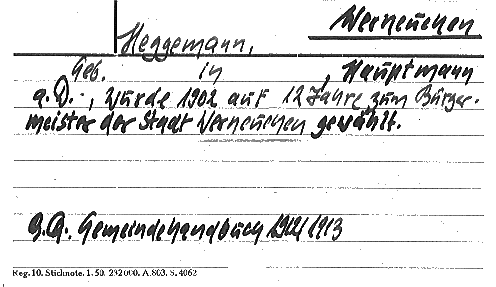 Werneuchen
Heggemann,
Geb. in , Hauptmann
a.D., wurde 1902 auf 12 Jahre zum Bürger-
meister der Stadt Werneuchen gewählt.
Gemeindehandbuch 1912/1913
Reg. 10. Sticknote. 1. 50. 232000. A. 803. S. 4062